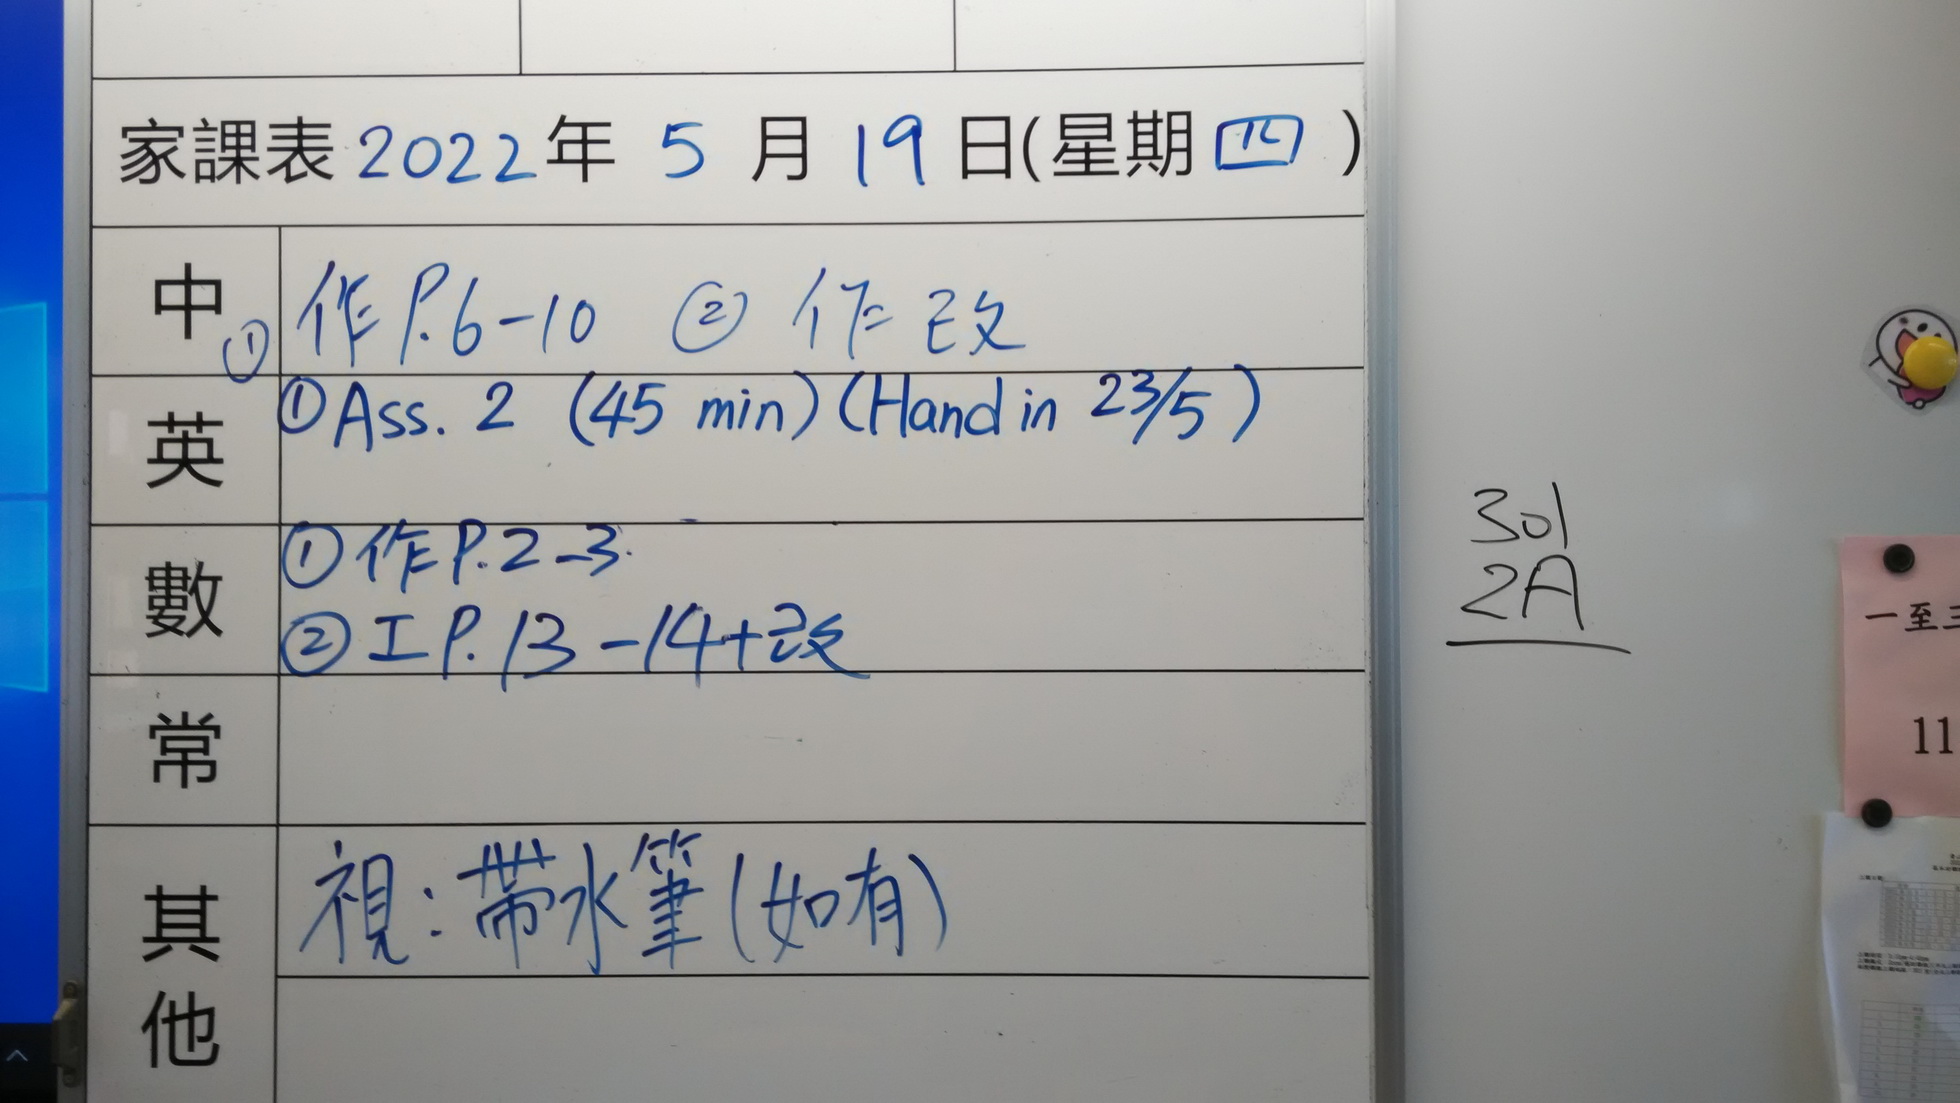 家課表 2022年 5 月 19 日(星期四)
中 ① 作 P.6-10 ② 作改
英 ① Ass. 2 (45 min) (Hand in 23/5)
數 ① 作 P.2-3
② 工 P.13-14+改
常
其他 視:帶水筆(如有)
301
2A
一至三
11